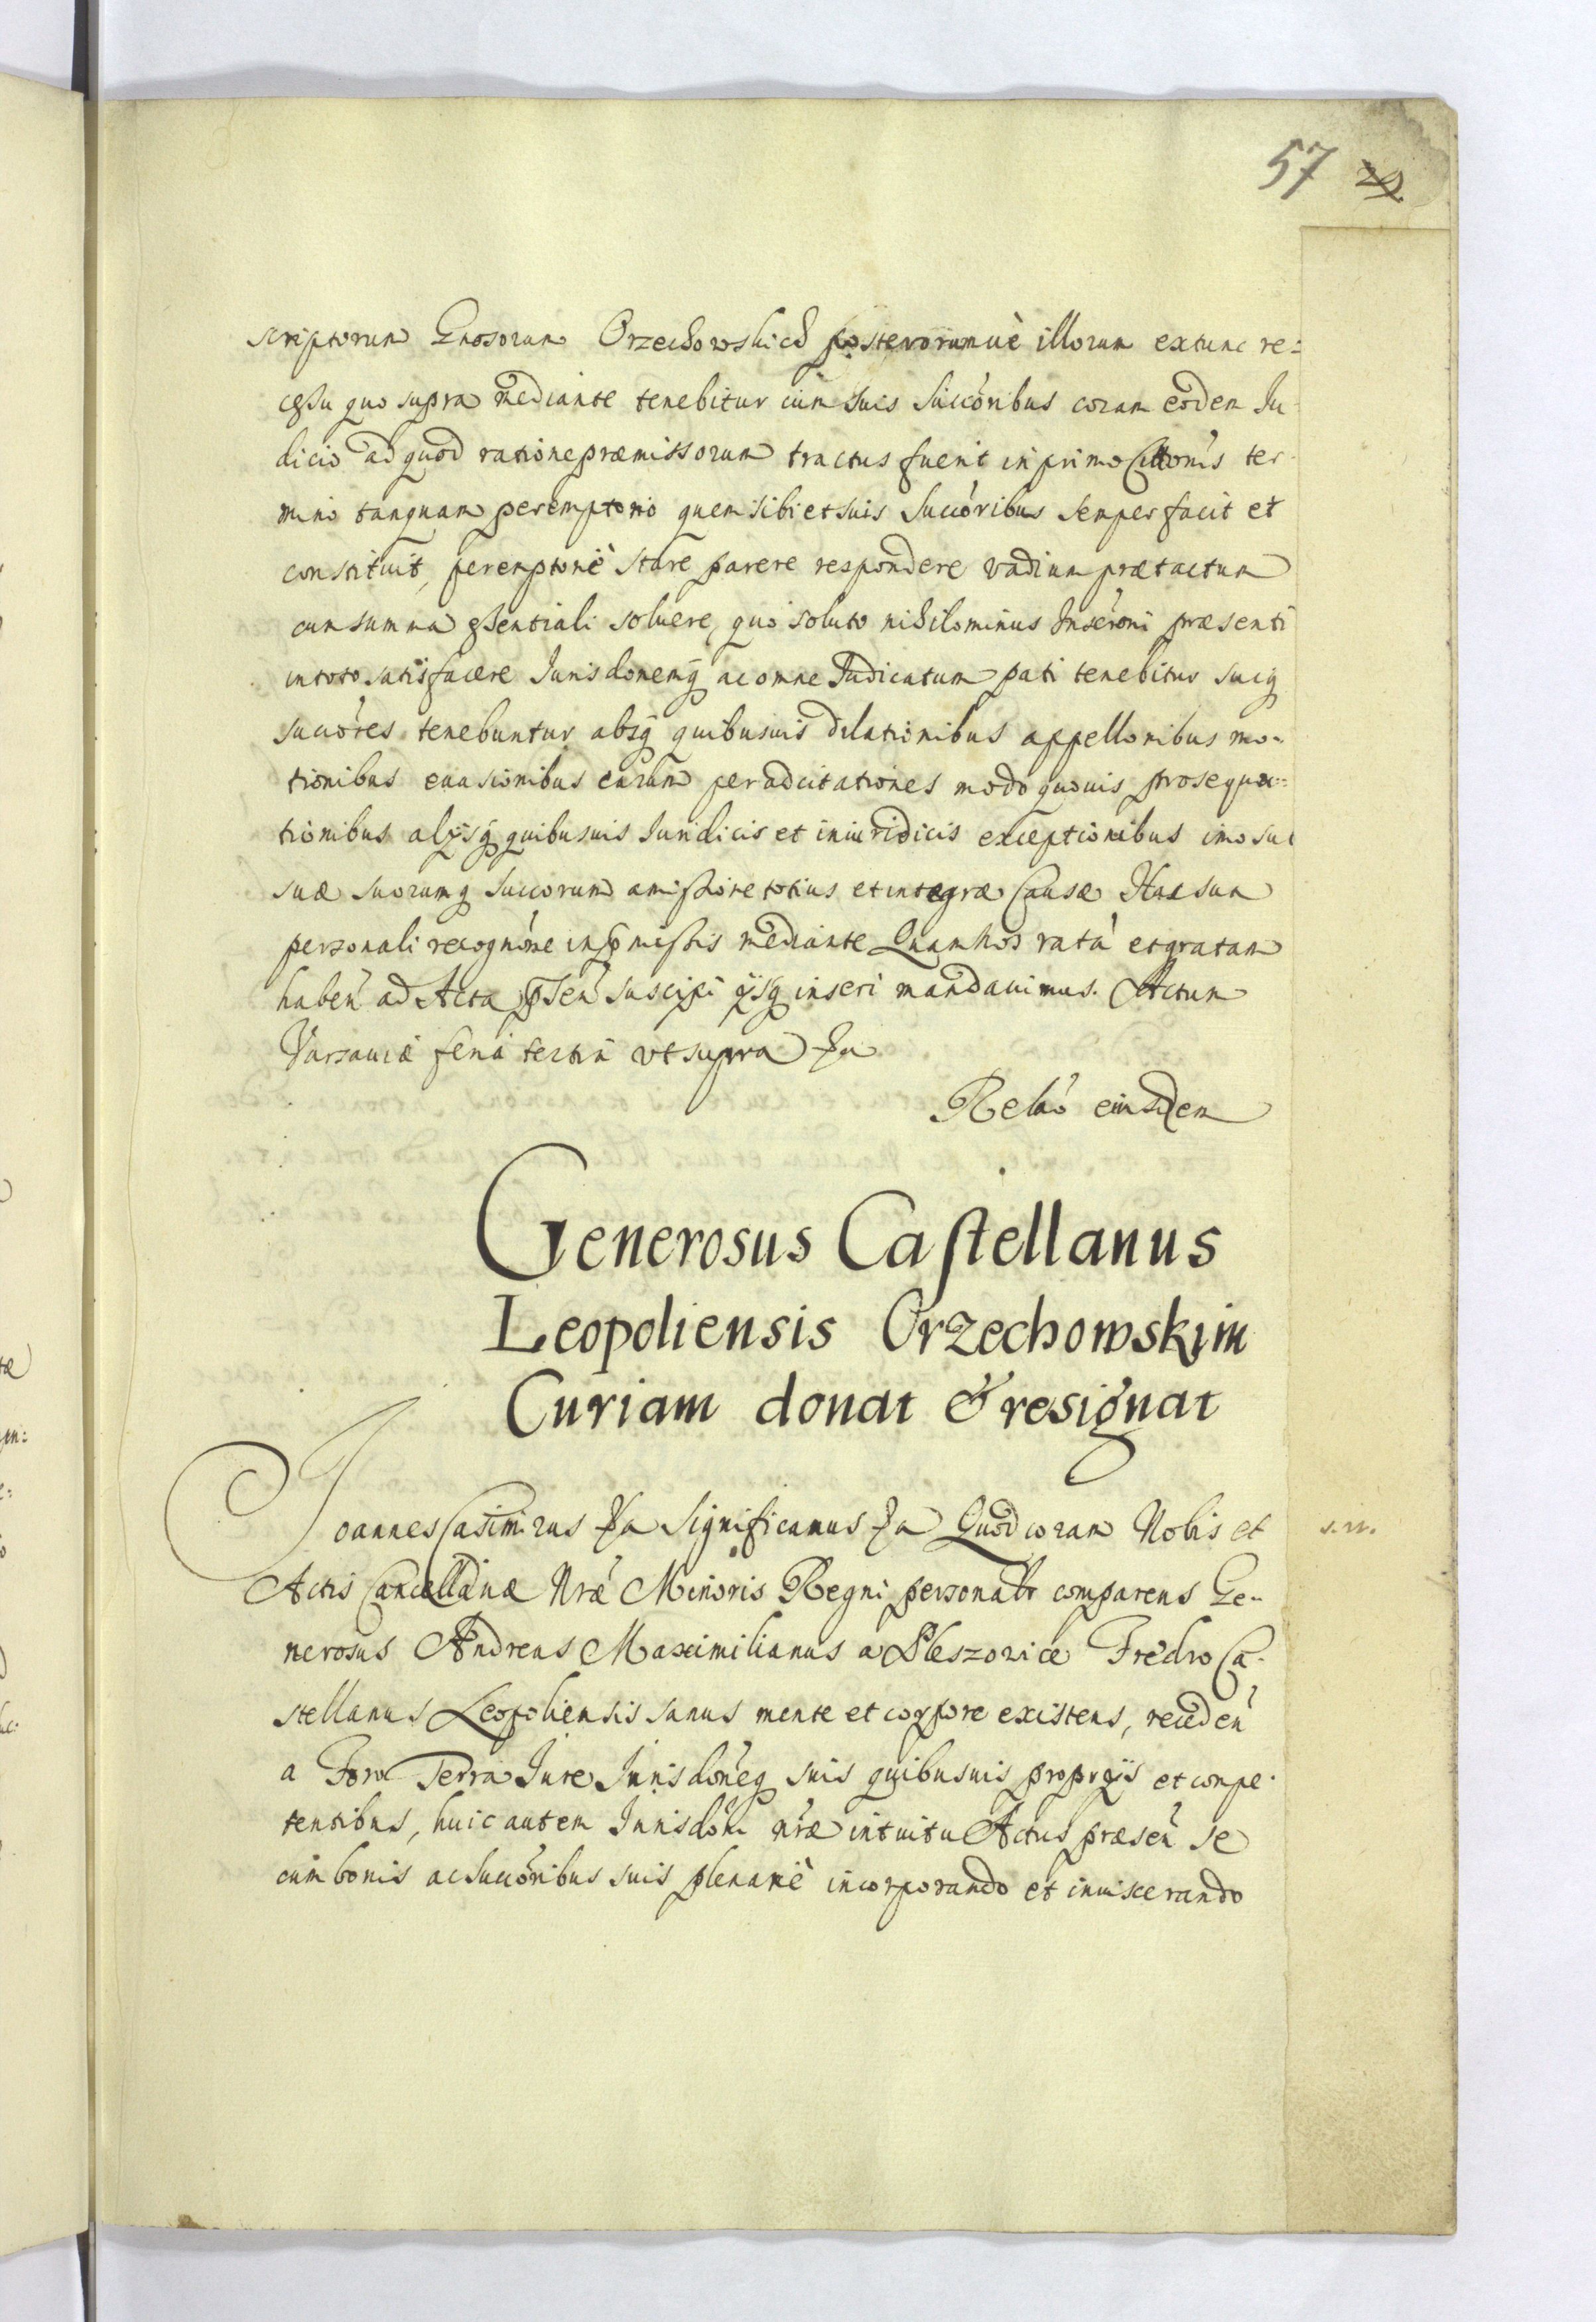 57 29
scriptorum Gnosorum Orzechowskich posterorumuè illorum extunc re=
cessu quo supra mediante tenebitur cum suis Succoribus coram eodem Iu
dicio ad quod ratione præmissorum tractus fuerit in primo Cittonis ter
mino tanquam peremptorio quem sibi et suis Succoribus semper facit et
constituit, peremptoriè stare parere respondere vadium prætactum
cum summa essentiali soluere, quo soluto nihilominus Inscroni præsenti
in toto satisfacere Iurisdonemq ac omne Iudicatum pati tenebitur suiq
succores tenebuntur absq quibusuis dilationibus appellonibus mo=
tionibus euasionibus earum per adcitationes modo quouis prosequu=
tionibus alysq quibusuis Iuridicis et iniuridicis exceptionibus imo sui
suæ suorumq succorum amissione totius et integræ Causæ Hac sua
personali recognone in præmissis mediante Quam hos ratā et gratam
haben ad Acta præsen suscipi ysq inseri mandauimus. Actum
Varsauiæ feria tertia vt supra
Relao eiusdem
Generosus Castellanus
Leopoliensis Orzechowskim
Curiam donat & resignat
Ioannes Casimirus Significamus Quod coram Nobis et
s. n.
Actis Cancellariæ Nræ Minoris Regni personalr comparens Ge=
nerosus Andreas Maximilianus a Pleszowice Fredro Ca=
stellanus Leopoliensis sanus mente et corpore existens, receden
a Foro Terra Iure Iurisdoneq suis quibusuis proprys et compe=
tentibus, huic autem Iurisdoni nræ intuitu Actus præsen se
cum bonis ac Succoribus suis plenariè incorporando et inuiscerando